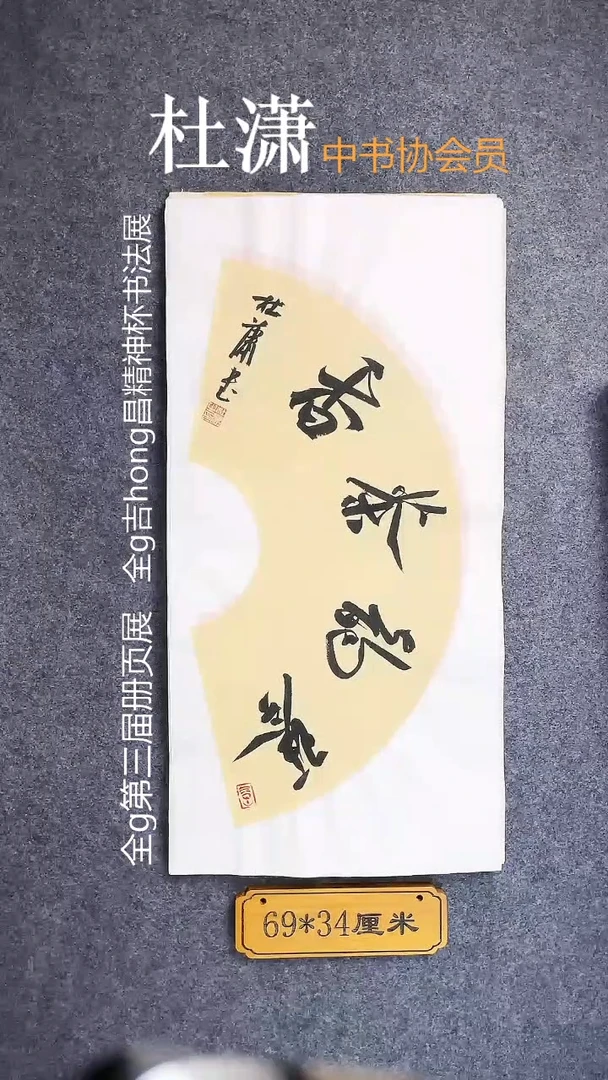 杜潇 中书协会员
全g吉hong昌精神杯书法展
全g第三届册页展
杜潇书
69*34厘米